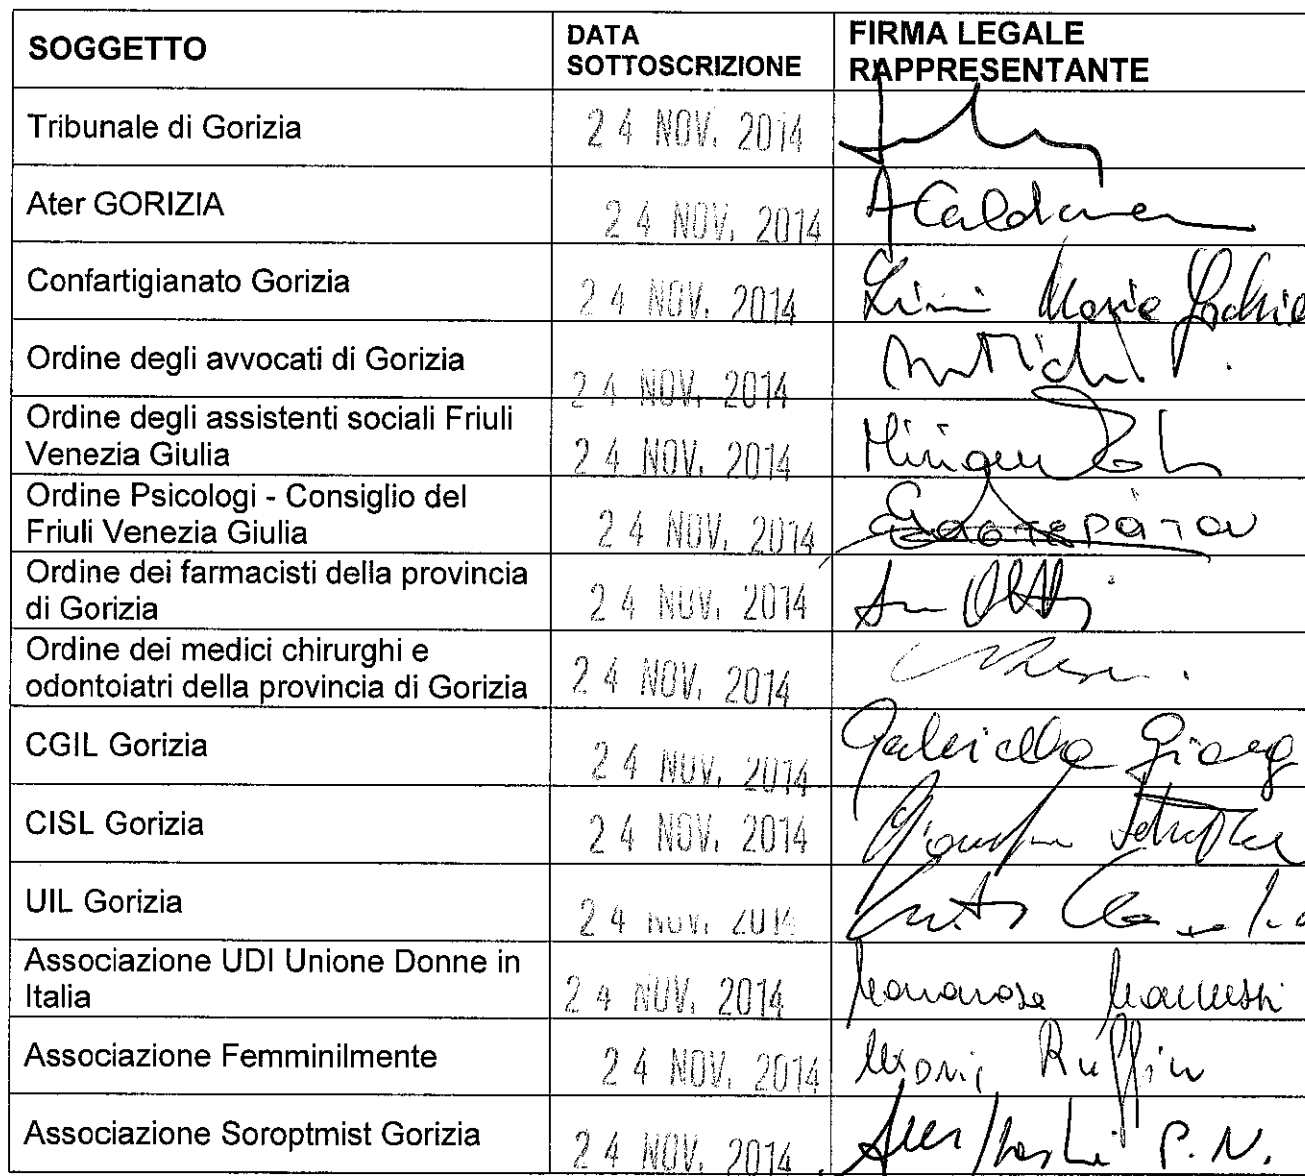 SOGGETTO
DATA SOTTOSCRIZIONE
FIRMA LEGALE RAPPRESENTANTE
Tribunale di Gorizia
24 NOV. 2014
Ater GORIZIA
24 NOV. 2014
Confartigianato Gorizia
24 NOV. 2014
Maria
Ordine degli avvocati di Gorizia
24 NOV. 2014
Ordine degli assistenti sociali Friuli
Venezia Giulia
24 NOV. 2014
Ordine Psicologi - Consiglio del
Friuli Venezia Giulia
24 NOV. 2014
Ordine dei farmacisti della provincia
di Gorizia
24 NOV. 2014
Ordine dei medici chirurghi e
odontoiatri della provincia di Gorizia
24 NOV. 2014
CGIL Gorizia
24 NOV. 2014
Gabriella Giorg
CISL Gorizia
24 NOV. 2014
UIL Gorizia
24 NOV. 2014
Associazione UDI Unione Donne in
Italia
24 NOV. 2014
Associazione Femminilmente
24 NOV. 2014
Ruffin
Associazione Soroptmist Gorizia
24 NOV. 2014
P.N.